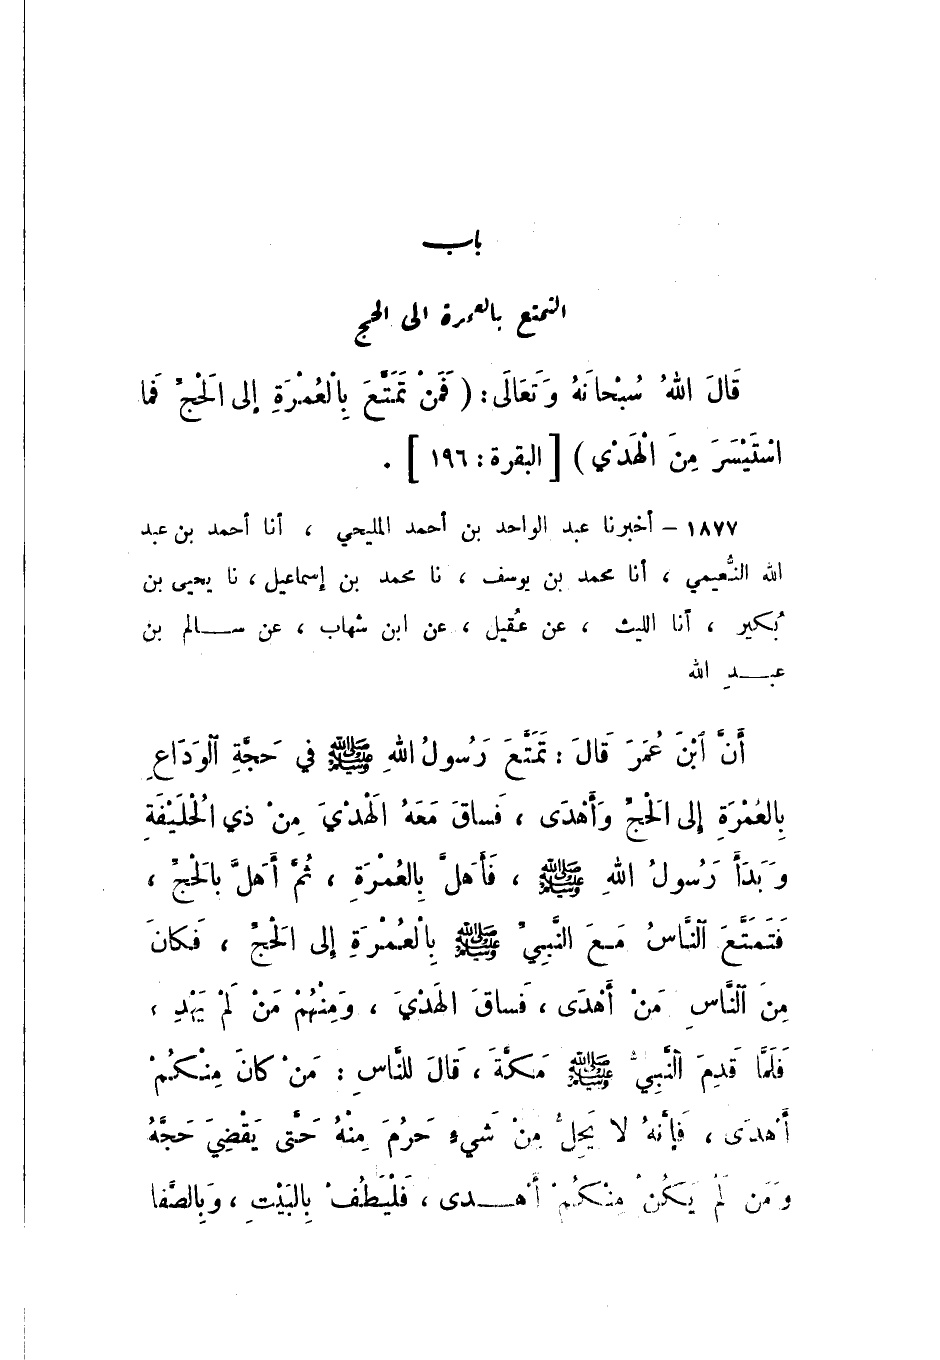 باب
التمتع بالعمرة الى الحج
قَالَ اللهُ سُبْحَانَهُ وَتَعَالَى: (فَمَنْ تَمَتَّعَ بِالْعُمْرَةِ إِلى الَحْجِّ فَما
اسْتَيْسَرَ مِنَ الْهَدْي) [ البقرة: ١٩٦ ] .
١٨٧٧ – أخبرنا عبد الواحد بن أحمد المليحي ، أنا أحمد بن عبد
الله النُّعيمي ، أنا محمد بن يوسف ، نا محمد بن إسماعيل ، نا يحيى بن
بُكير ، أنا الليث ، عن عُقيل ، عن ابن شهاب ، عن سـالم بن
عبـدِ الله
أَنَّ ٱبْنَ عُمَرَ قَالَ : تَمَتَّعَ رَسُولُ اللهِ ﷺ في حَجَّةِ ٱلوَدَاعِ
بِالعُمْرَةِ إِلى الَحْجِّ وَأَهْدَى ، فَساقَ مَعَهُ الَهْدْيَ مِنْ ذي الُحْلَيْفَةِ
وَبَدَأَ رَسُولُ اللهِ ﷺ ، فَأَهَلَّ بِالعُمْرَةِ ، ثُمَّ أَهَلَّ بالَحْجِّ ،
فَتَمَتَّعَ ٱلنَّاسُ مَـعَ النَّبِيِّ ﷺ بِالْعُمْرَةِ إِلى الَحْجِّ ، فَكانَ
مِنَ ٱلنَّاسِ مَنْ أَهْدَى ، فَساقَ الهَدْيَ ، وَمِنْهُمْ مَنْ لَمْ يَهْدِ ،
فَلَمَّا قَدِمَ ٱلنَّبِيُّ ﷺ مَكَّةَ ، قَالَ للنَّاسِ : مَنْ كانَ مِنْكُمْ
أَهْدَى ، فَإِنَّهُ لا يَحِلُّ مِنْ شَيءٍ حَرُمَ مِنْهُ حَتَّى يَقْضِيَ حَجَّهُ
وَمَن لَمْ يَكُنْ مِنْكُمْ أَهْـدى ، فَلْيَطُفْ بِالبَيْتِ ، وَبِالصَّفا